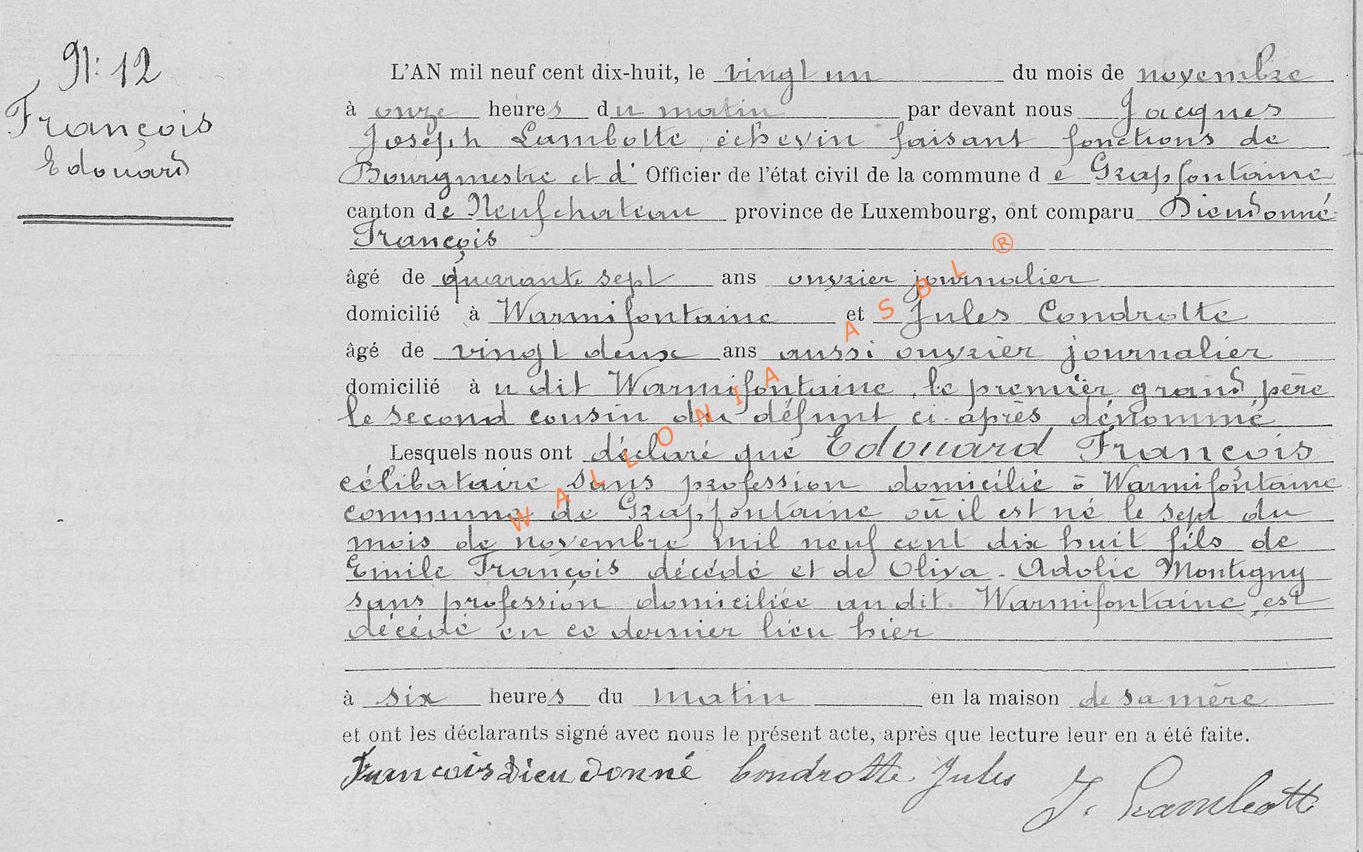 N: 12
François
Edouard
L'AN mil neuf cent dix-huit, le vingt un du mois de novembre
à onze heures du matin par devant nous Jacques
Joseph Lambotte, échevin faisant fonctions de
Bourgmestre et d' Officier de l'état civil de la commune de Grapfontaine
canton de Neufchateau province de Luxembourg, ont comparu Dieudonné
François
âgé de quarante sept ans ouvrier journalier
domicilié à Warmifontaine et Jules Condrotte
âgé de vingt deux ans aussi ouvrier journalier
domicilié à u dit Warmifontaine, le premier grand père
le second cousin du défunt ci-après dénommé
Lesquels nous ont déclaré que Edouard François
célibataire sans profession domicilié à Warmifontaine
commune de Grapfontaine où il est né le sept du
mois de novembre mil neuf cent dix huit fils de
Emile François décédé et de Oliva-Adolie Montigny
sans profession domiciliée au dit Warmifontaine, est
décédé en ce dernier lieu hier
à six heures du matin en la maison de sa mère
et ont les déclarants signé avec nous le présent acte, après que lecture leur en a été faite.
François Dieudonné Condrotte Jules
J. Lambotte
WALLONIA ASBL ®